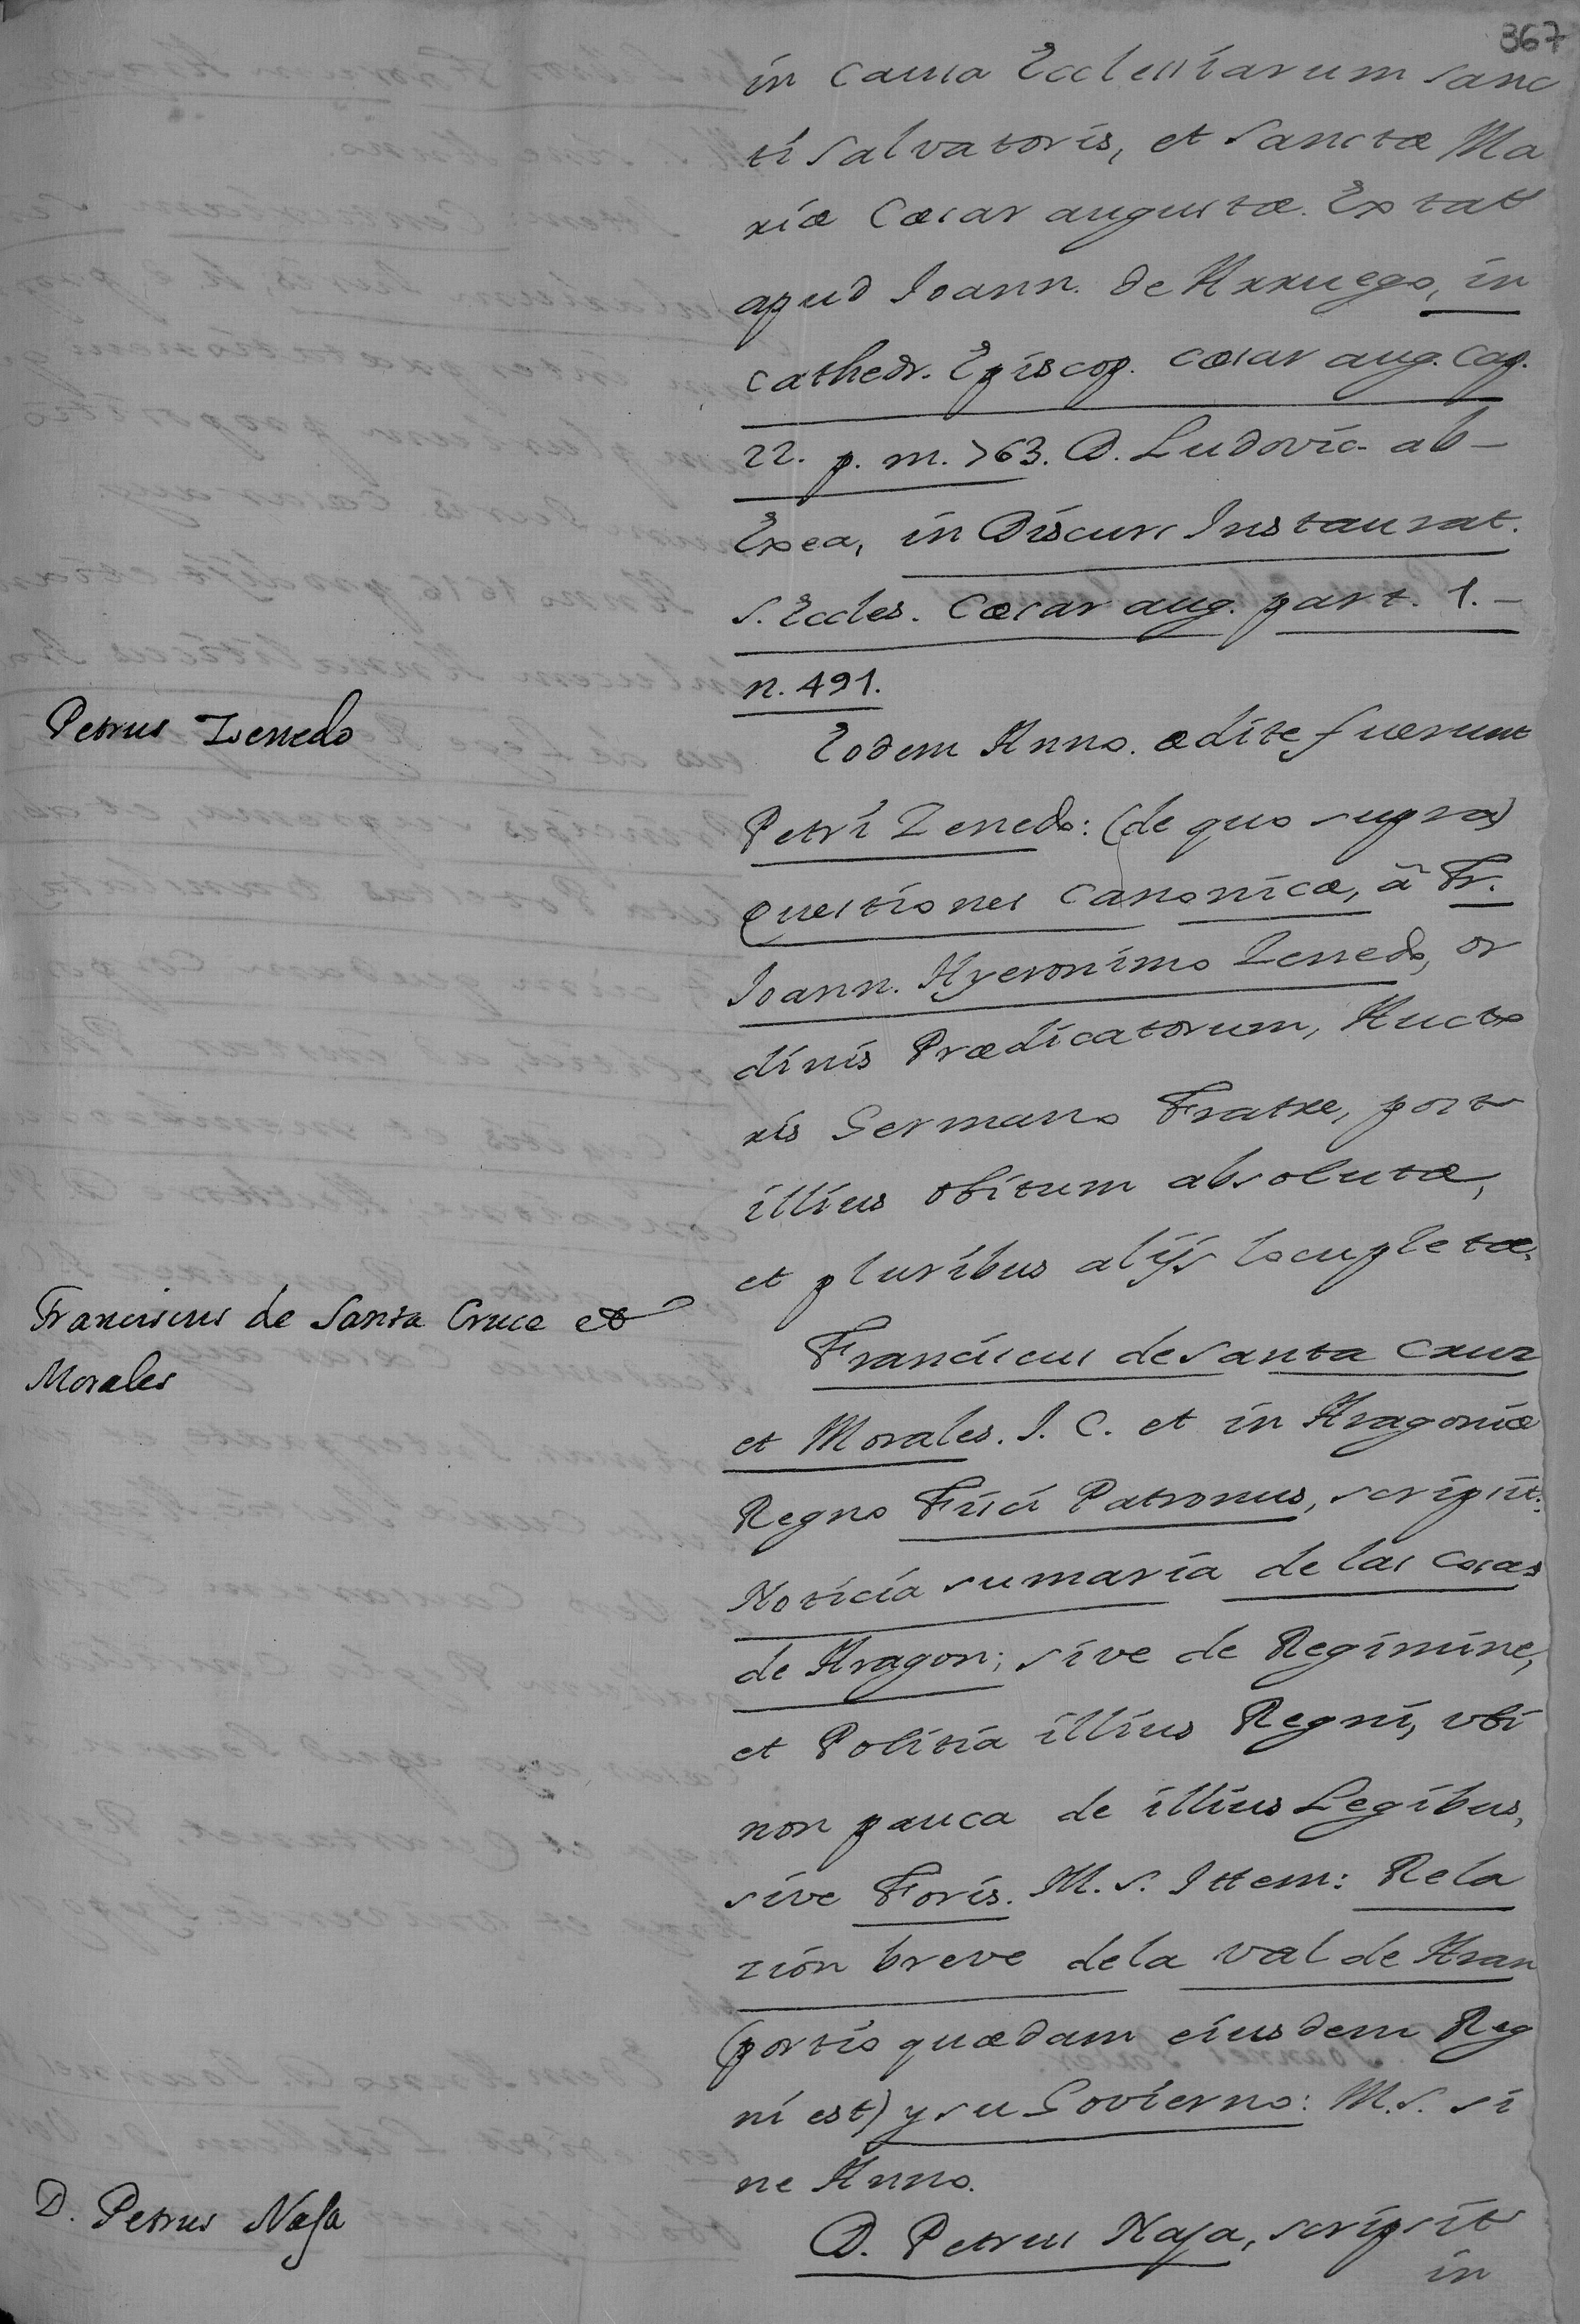 367
in causa Ecclesiarum sanc
ti salvatoris, et sanctæ Ma
riæ Cæsar augustæ. Extat
apud Ioann. de Arruego, in
cathedr. Episcop. cæsar aug. cap.
22. p. m. 763. D. Ludovic. ab-
Exea, in Discurs Instaurat.
s. Eccles. Cæsar aug. part. 1.-
n. 491.
Petrus Zenedo
Eodem Anno. ædite fuerunt
Petri Zenedo: (de quo supra)
Questiones Canonicæ, à Fr.
Ioann. Hyeronimo Zenedo, or
dinis Prædicatorum, Aucto
ris Germano Fratre, post
illius obitum absolutæ,
et pluribus alijs locupletæ.
Franciscus de Santa Cruce et
Morales
Franciscus de santa cruz
et Morales. I. C. et in Aragoniæ
Regno Fisci Patronus, scripsit:
Noticia sumaria de las cosas
de Aragon; sive de Regimine,
et Politia illius Regni, vbi
non pauca de illius Legibus,
sive Foris. M. s. Ittem: Rela
zion breve dela val de Aran
(portio quædam eiusdem Reg
ni est) y su Govierno: M.s. si
ne Anno.
D. Petrus Nasa
D. Petrus Nasa, scripsit
in